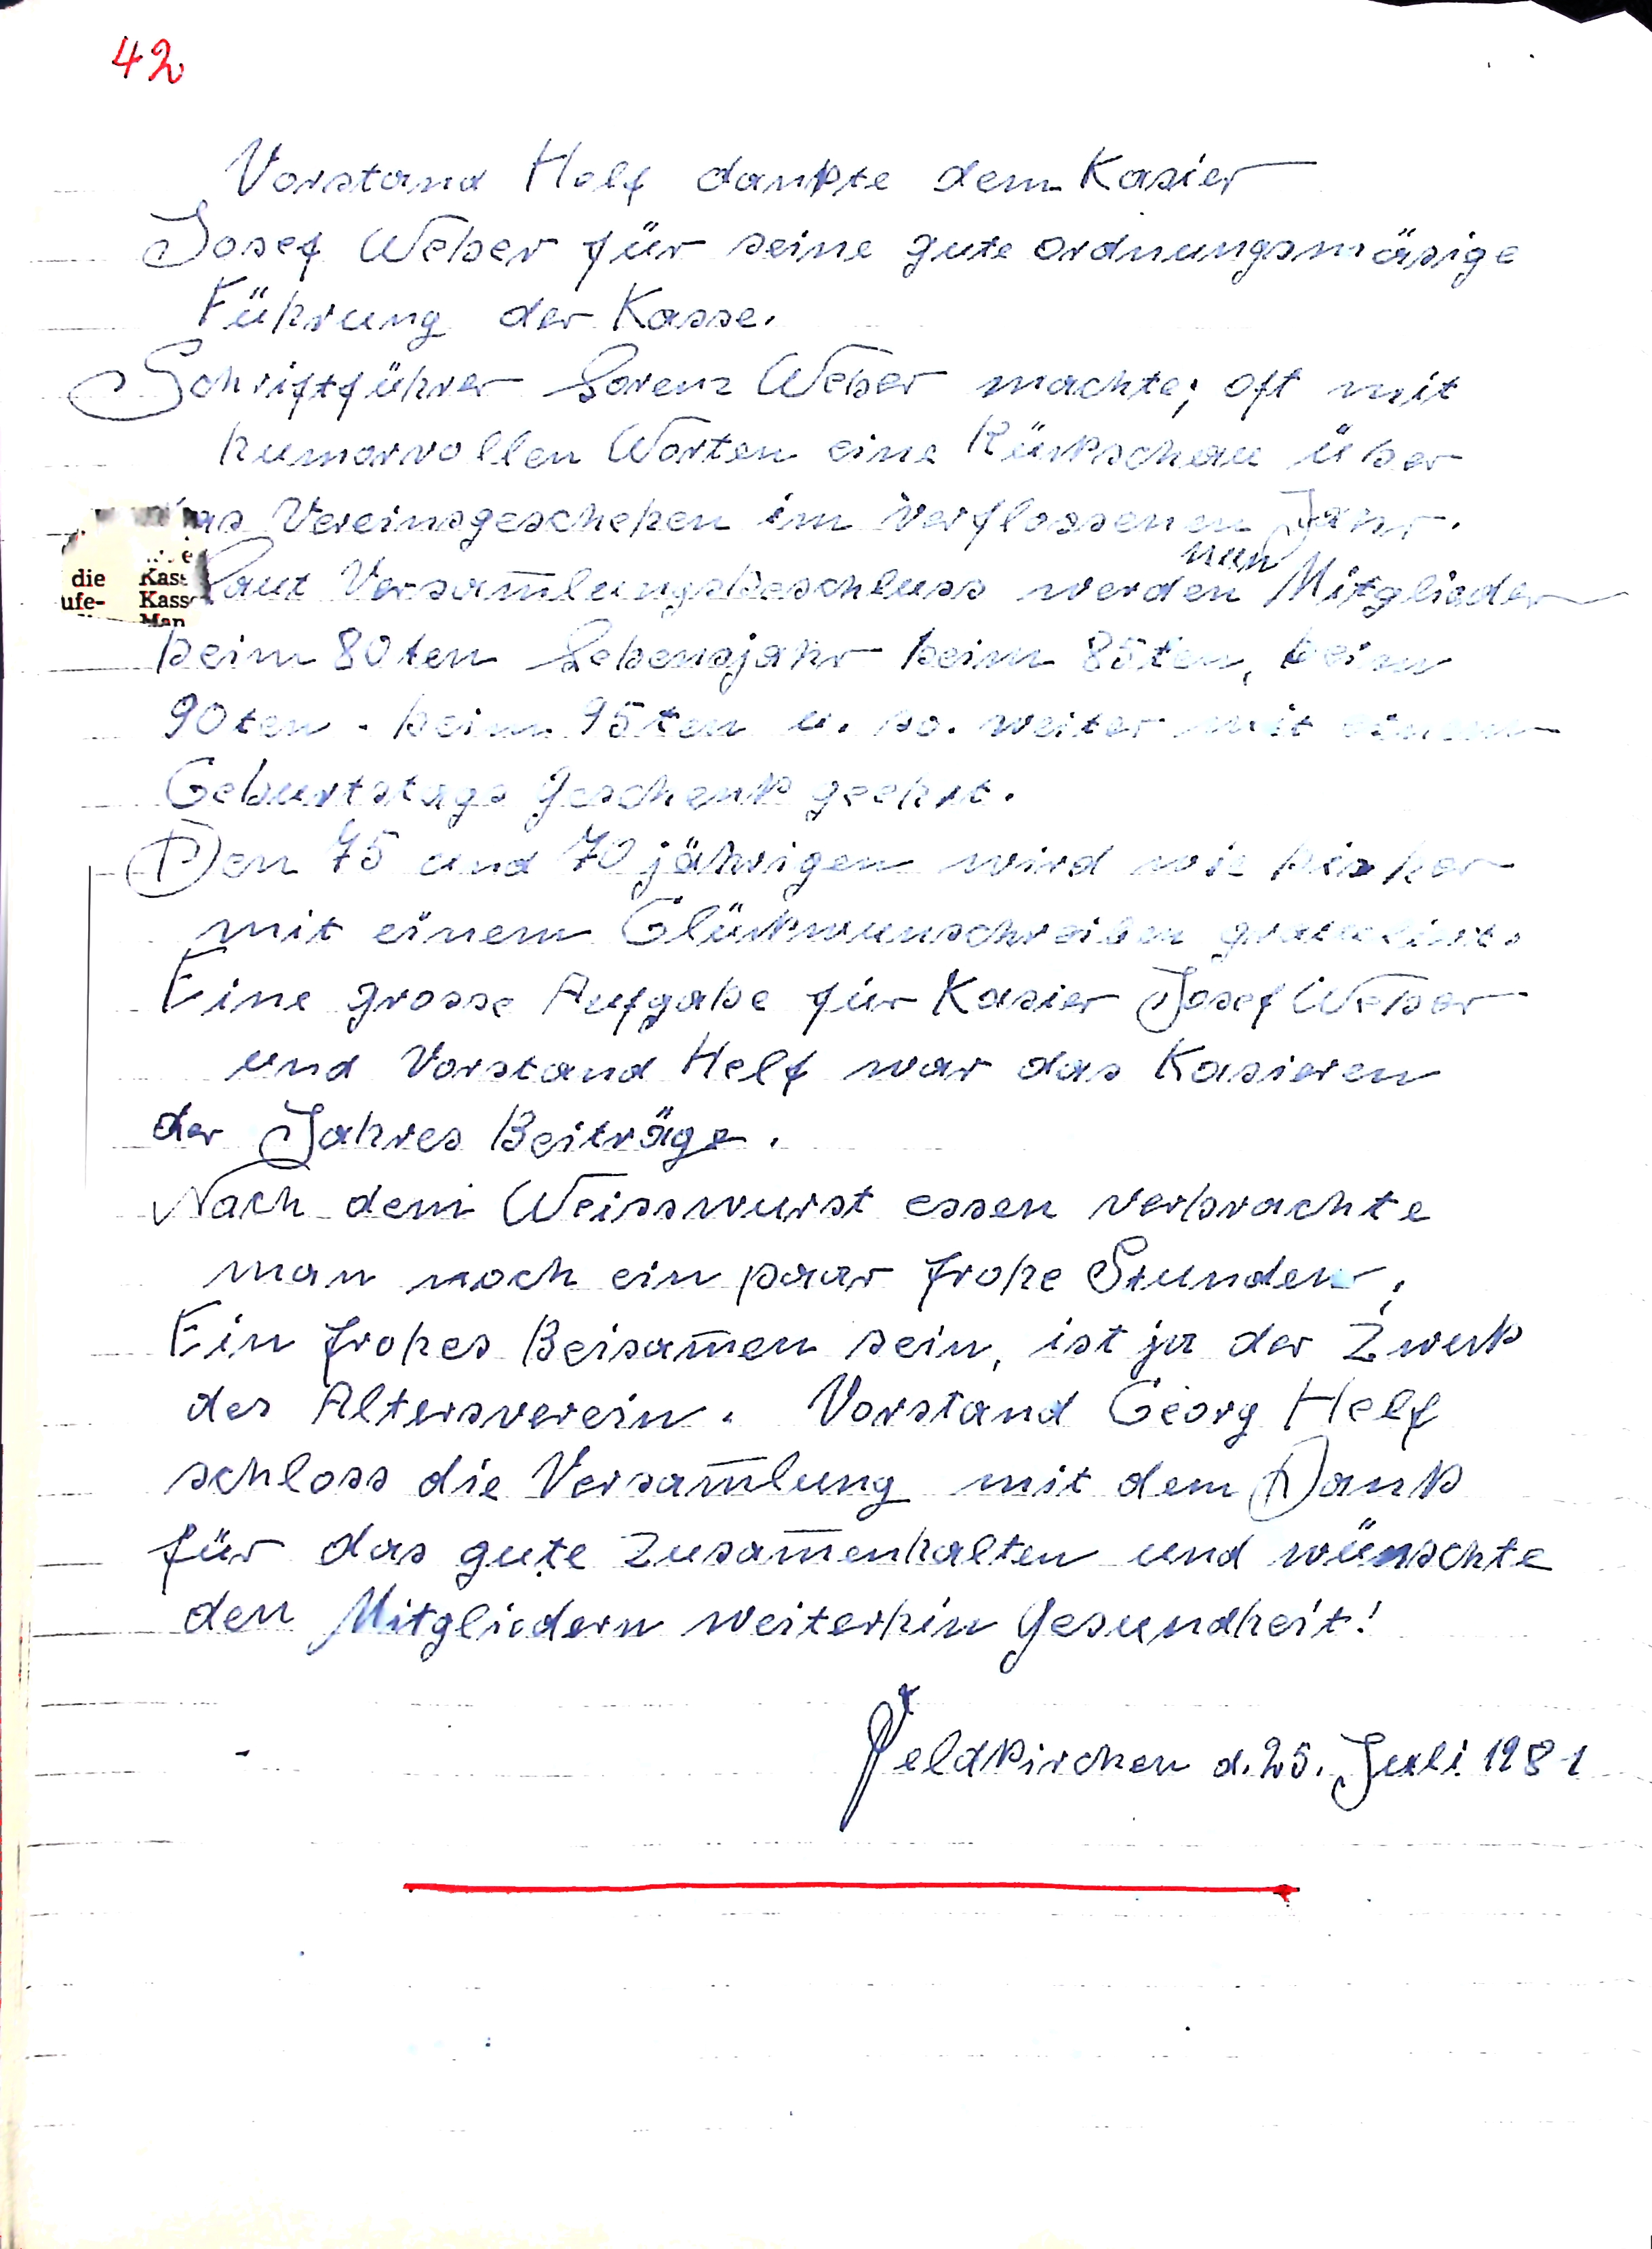 42
Vorstand Helf dankte dem Kasier
Josef Weber für seine gute ordnungsmäsige
Führung der Kasse.
Schriftführer Lorenz Weber machte; oft mit
humorvollen Worten eine Rükschau über
das Vereinsgeschehen im verflossenen Jahr.
nun
Laut Versam̅lungsbeschluss werden Mitglieder
beim 80ten Lebensjahr beim 85ten, beim
90ten - beim 95ten u. so. weiter mit einem
Geburtstags Geschenk geehrt.
Den 75 und 70 jährigen wird wie bisher
mit einem Glükwunschreiben gratuliert.
Eine grosse Aufgabe für Kasier Josef Weber
und Vorstand Helf war das Kasieren
der Jahres Beiträge.
Nach dem Weisswurst essen verbrachte
man noch ein paar frohe Stunden,
Ein frohes Beisam̅en sein, ist ja der Zwek
des Altersverein. Vorstand Georg Helf
schloss die Versam̅lung mit dem Dank
für das gute Zusam̅enhalten und wünschte
den Mitgliedern weiterhin Gesundheit!
Feldkirchen d. 25. Juli 1981
die Kass
ufe- Kass